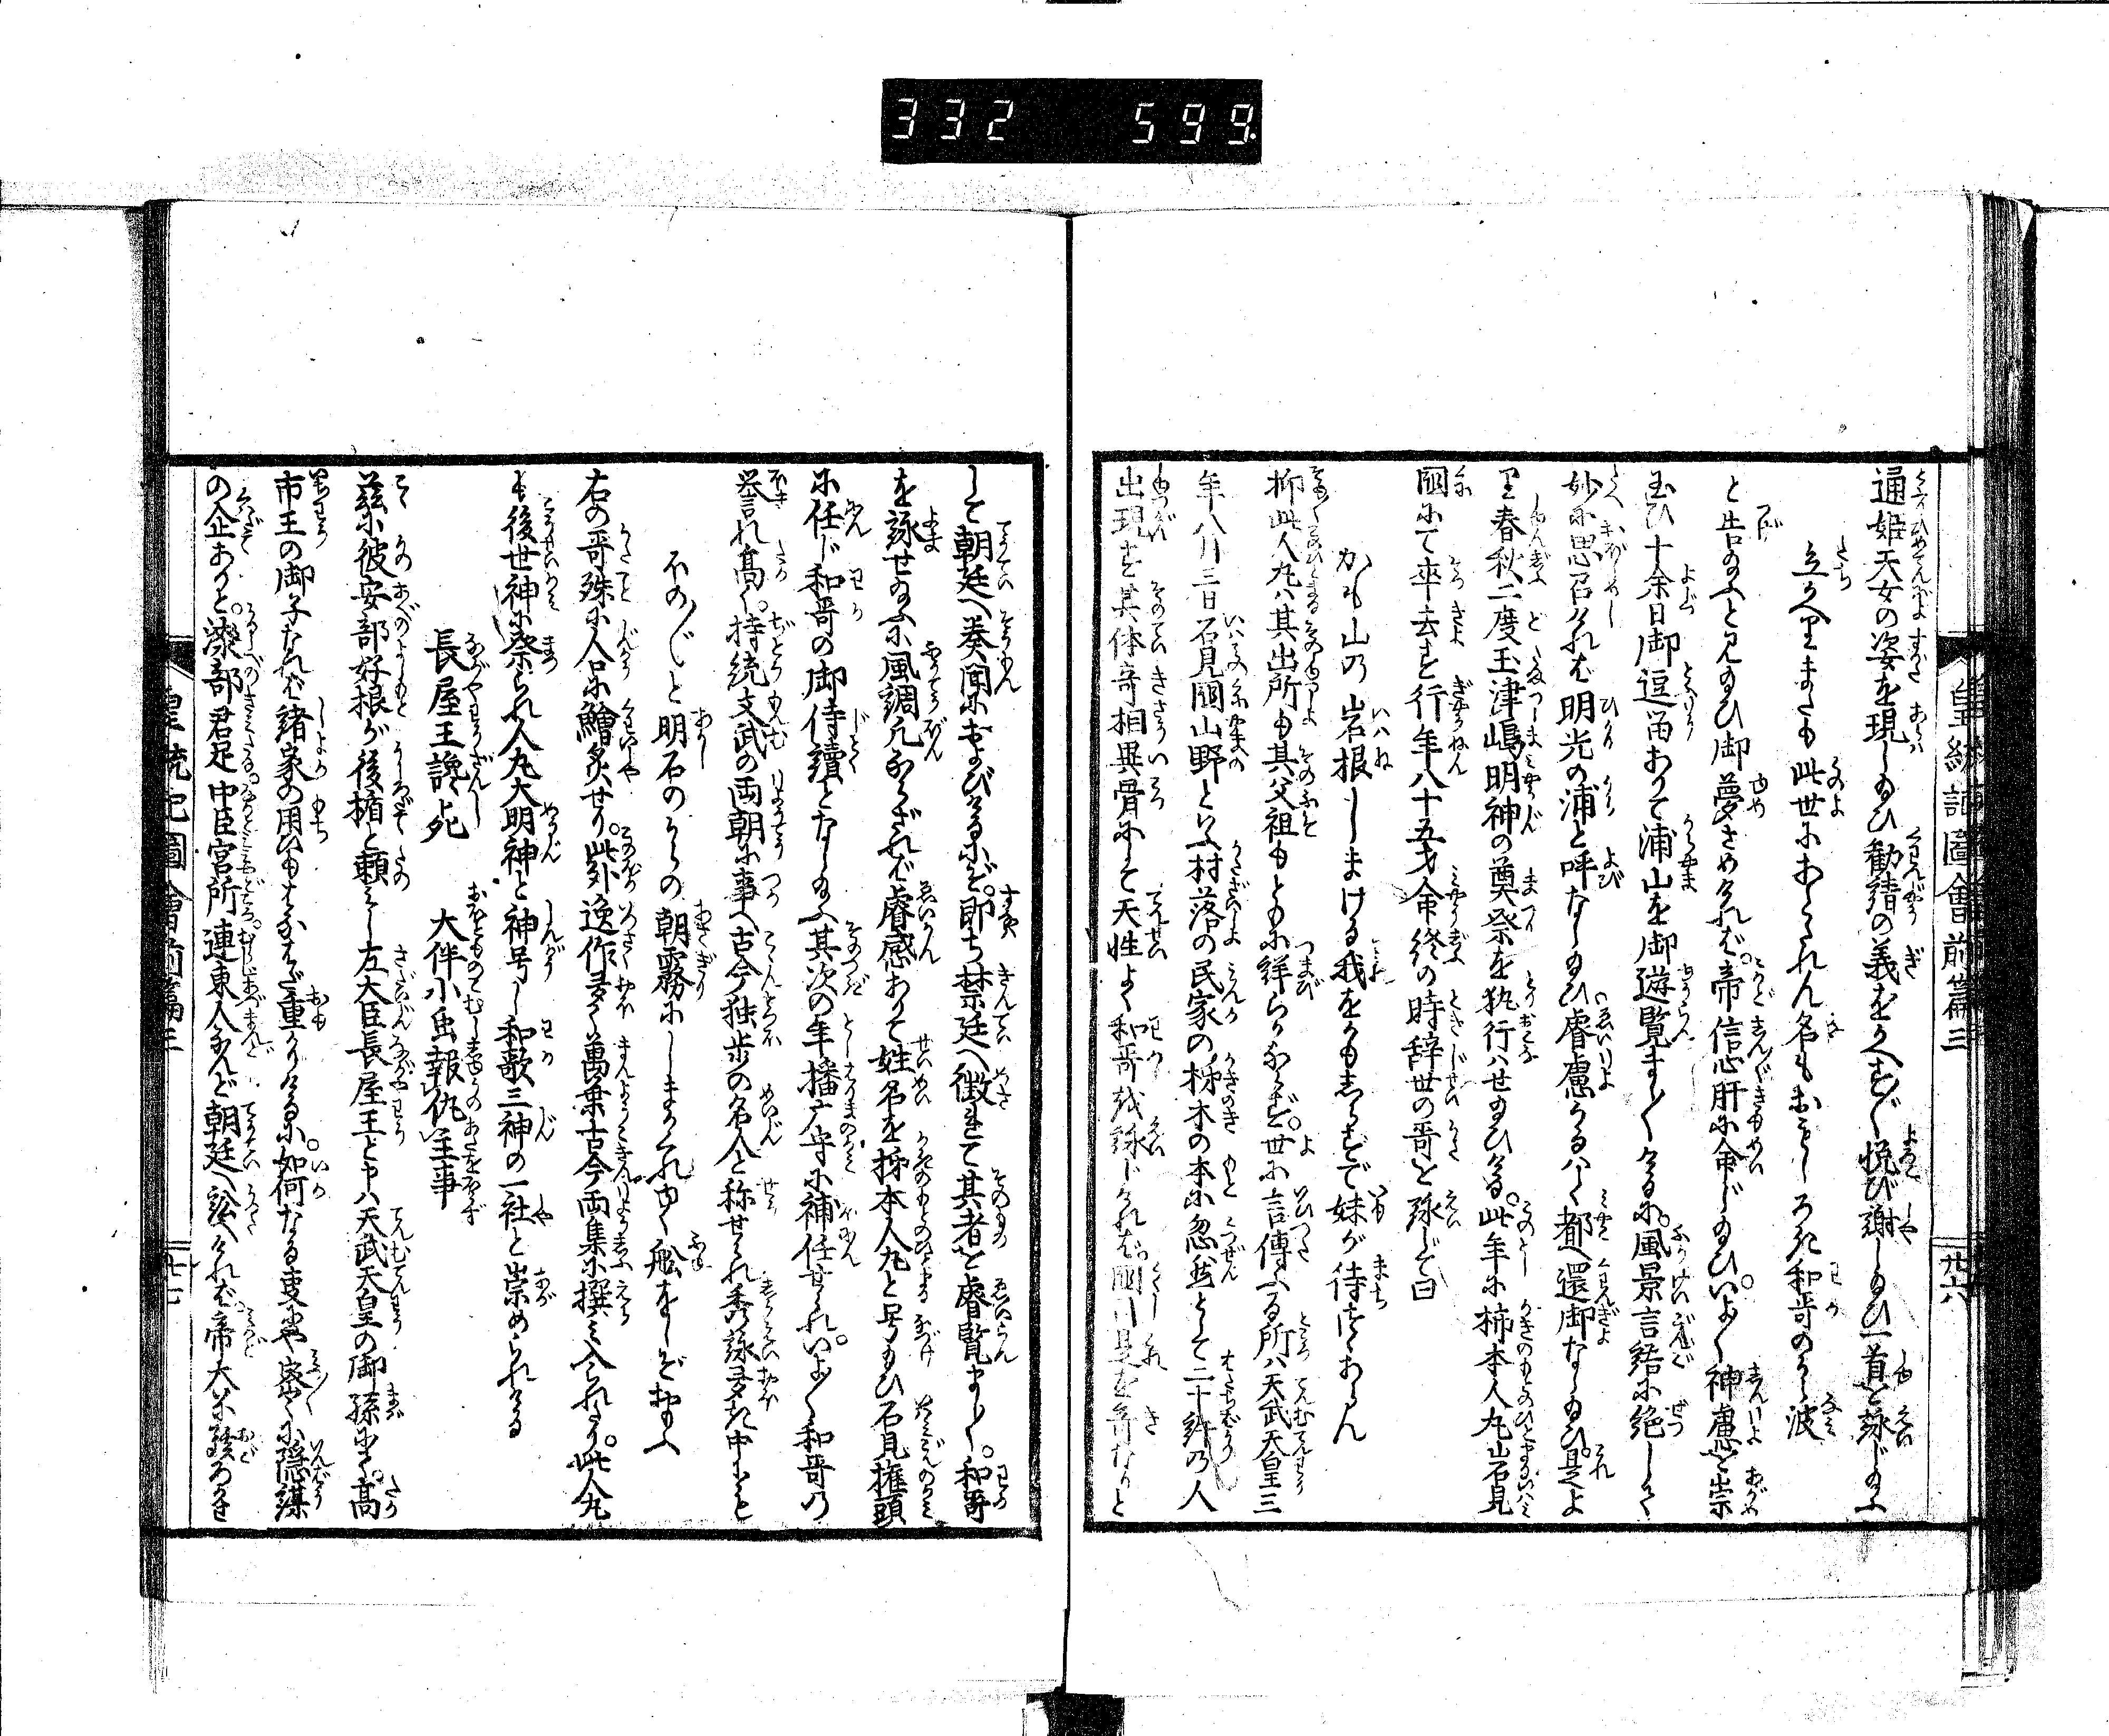 332 599
皇統記圖會前篇三
廿六
通姫天女の姿を現し給ひ勧請の義をかへす〴〵悦び謝し給ひ一首を詠じ給ふ
立かへりまたも此世にあとたれん名もおもしろき和哥のうら波
と告給ふと見給ひ御夢さめければ。帝信心肝に命じ給ひ。いよ〳〵神慮を崇
玉ひ十余日御逗留ありて浦山を御遊覧まし〳〵けるに。風景言語に絶しく
妙に思召ければ明光の浦と呼なし給ひ睿慮うるはしく都へ還御なし給ひ。是よ
り春秋二度玉津嶋明神の奠祭を執行はせ給ひける。此年に柿本人丸石見
國にて卒去す行年八十五才命終の時辞世の哥を詠じて曰
かも山の岩根しまける我をかもしらすて妹が待つゝあらん
抑此人丸は其出所も其父祖もともに詳らかならず。世に言傳ふる所は天武天皇三
年八月三日石見國山野といふ村落の民家の柿木の本に忽然として二十許の人
出現す其体奇相異骨にして天性よく和哥を詠じければ國司是を奇なりと
して朝廷へ奏聞におよびけるにぞ。即ち禁廷へ徴れて其者を睿覧まし〳〵。和哥
を詠せ給ふに風調凡ならざれば睿感ありて姓名を柿本人丸と号給ひ石見權頭
に任じ和哥の御侍讀となし給ふ其次の年播广守に補任せられ。いよ〳〵和哥の
誉れ高く。持統文武の両朝に事へ古今独歩の名人と称せられ秀詠多き中にも
ほの〴〵と明石のうらの朝霧にしまかくれゆく舩をしぞおもふ
右の哥殊に人口に鱠炙せり。此外逸作多く萬葉古今両集に撰み入られたり。此人丸
を後世神に祭られ人丸大明神と神号し和歌三神の一社と崇められける
長屋王讒死　大伴小虫報仇主事
茲に彼安部好根が後楯と頼みし左大臣長屋王と申は天武天皇の御孫にて。高
市王の御子なれば諸家の用ひもなほざり重かりけるに。如何なる事にや密に隠謀
の企ありと。漆部君足中臣宮所連東人など朝廷へ訟へければ。帝大に驚ろかせ
皇統記圖會前篇三
廿七